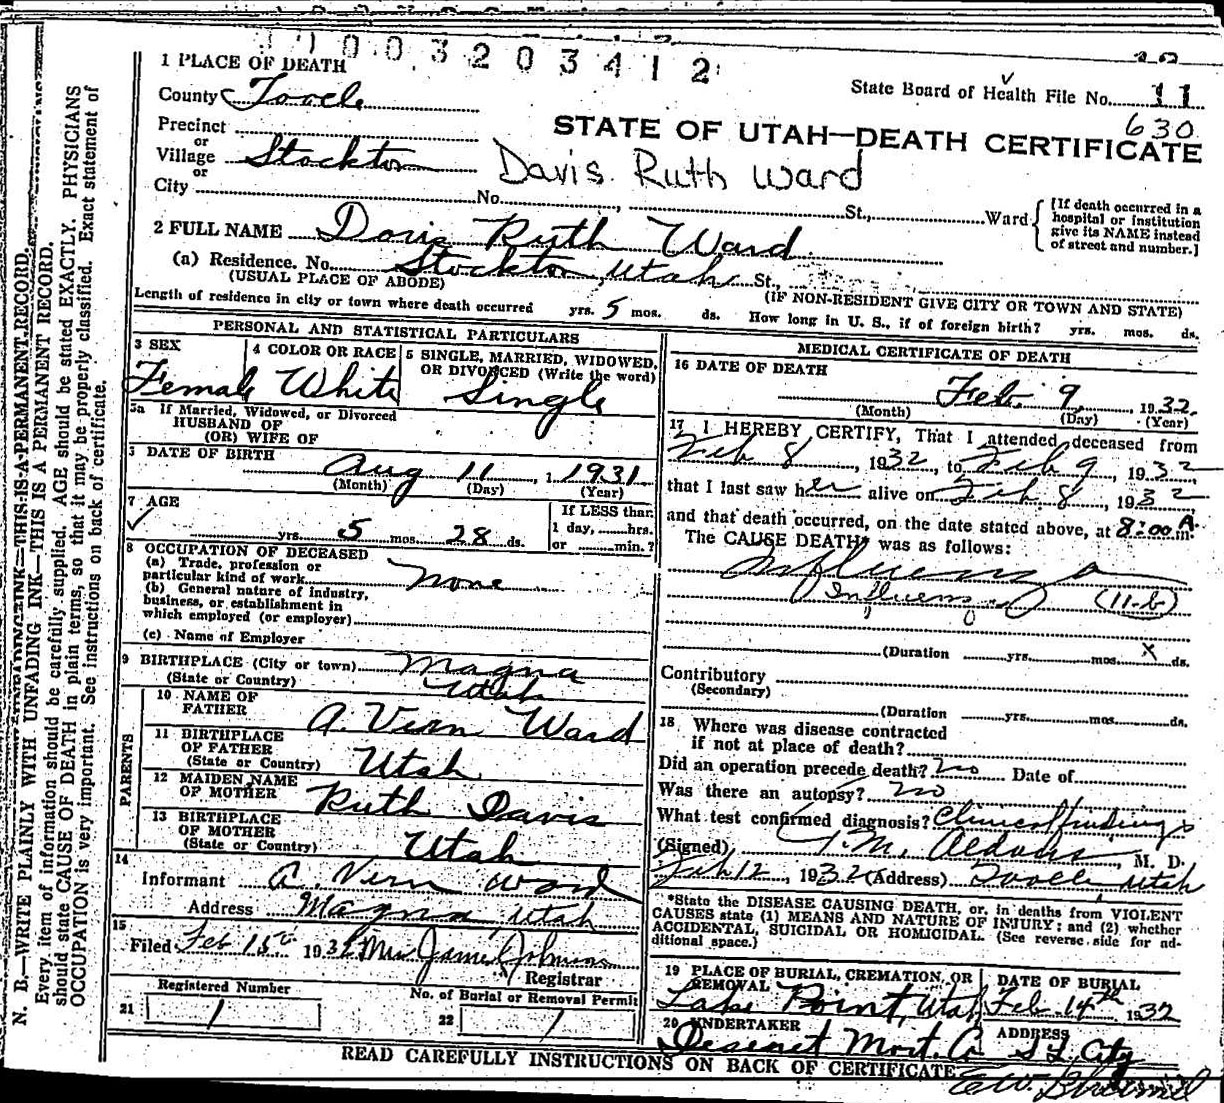 1 0 0 3 2 0 3 4 1 2
1 PLACE OF DEATH
State Board of Health File No. 11
County Tooele
630
STATE OF UTAH—DEATH CERTIFICATE
Precinct
or
Village Stockton
Davis Ruth Ward
or
City
No. , St., Ward
[If death occurred in a hospital or institution give its NAME instead of street and number.]
2 FULL NAME Doris Ruth Ward
(a) Residence. No. Stockton, Utah St.,
(USUAL PLACE OF ABODE)
(IF NON-RESIDENT GIVE CITY OR TOWN AND STATE)
Length of residence in city or town where death occurred yrs. 5 mos. ds. How long in U. S., if of foreign birth? yrs. mos. ds.
PERSONAL AND STATISTICAL PARTICULARS
3 SEX
Female
4 COLOR OR RACE
White
5 SINGLE, MARRIED, WIDOWED, OR DIVORCED (Write the word)
Single
5a If Married, Widowed, or Divorced
HUSBAND OF
(OR) WIFE OF
DATE OF BIRTH
Aug 11, 1931
(Month) (Day) (Year)
7 AGE
yrs. 5 mos. 28 ds.
If LESS than
1 day, hrs.
or min.?
8 OCCUPATION OF DECEASED
(a) Trade, profession or
particular kind of work none
(b) General nature of industry,
business, or establishment in
which employed (or employer)
(c) Name of Employer
9 BIRTHPLACE (City or town) Magna
(State or Country) Utah
PARENTS
10 NAME OF
FATHER A. Vern Ward
11 BIRTHPLACE
OF FATHER
(State or Country) Utah
12 MAIDEN NAME
OF MOTHER Ruth Davis
13 BIRTHPLACE
OF MOTHER
(State or Country) Utah
14
Informant A. Vern Ward
Address Magna Utah
15
Filed Feb 15th 1932 Mrs James
Registrar
Registered Number
21 1
No. of Burial or Removal Permit
22 1
MEDICAL CERTIFICATE OF DEATH
16 DATE OF DEATH
Feb. 9, 1932
(Month) (Day) (Year)
17 I HEREBY CERTIFY, That I attended deceased from
Feb 8, 1932, to Feb 9, 1932
that I last saw her alive on Feb 8, 1932
and that death occurred, on the date stated above, at 8:00 A m.
The CAUSE DEATH* was as follows:
Influenza
Influenza (11-b)
(Duration yrs. mos. X ds.
Contributory
(Secondary)
(Duration yrs. mos. ds.
18 Where was disease contracted
if not at place of death?
Did an operation precede death? no Date of
Was there an autopsy? no
What test confirmed diagnosis? Clinical findings
(Signed) M. D.
Feb 12, 1932 (Address) Tooele, Utah
*State the DISEASE CAUSING DEATH, or, in deaths from VIOLENT
CAUSES state (1) MEANS AND NATURE OF INJURY; and (2) whether
ACCIDENTAL, SUICIDAL OR HOMICIDAL. (See reverse side for ad-
ditional space.)
19 PLACE OF BURIAL, CREMATION, OR
REMOVAL
Lake Point, Utah
DATE OF BURIAL
Feb. 14th 1932
20 UNDERTAKER
Deseret Mort. Co
ADDRESS
S L City
READ CAREFULLY INSTRUCTIONS ON BACK OF CERTIFICATE
N. B.—WRITE PLAINLY WITH UNFADING INK—THIS IS A PERMANENT RECORD.
Every item of information should be carefully supplied. AGE should be stated EXACTLY. PHYSICIANS
should state CAUSE OF DEATH in plain terms, so that it may be properly classified. Exact statement of
OCCUPATION is very important. See instructions on back of certificate.